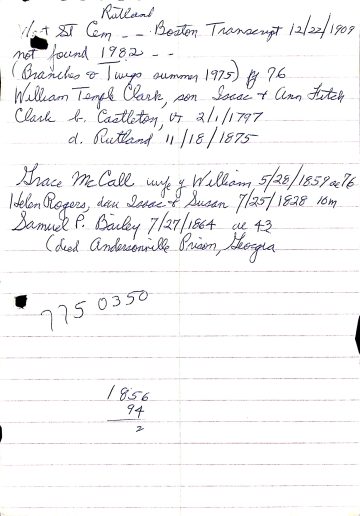 Rutland
West St Cem - - Boston Transcript 12/22/1909
not found 1982 - -
(Branches & Twigs summer 1975) pg 76
William Temple Clark, son Isaac + Ann Fitch
Clark b. Castleton, VT 2/1/1797
d. Rutland 11/18/1875
Grace McCall wife of William 5/28/1859 ae 76
Helen Rogers, dau Isaac + Susan 7/25/1828 10m
Samuel P. Bailey 7/27/1864 ae 43
(died Andersonville Prison, Georgia
775 0350
1856
94
2